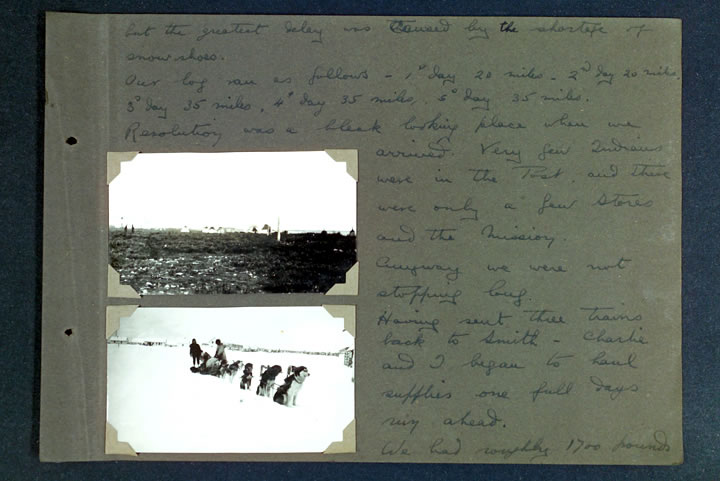 but the greatest delay was caused by the shortage of
snow shoes.
Our log ran as follows - 1st day 20 miles - 2nd day 20 miles,
3rd day 35 miles, 4th day 35 miles, 5th day 35 miles.
Resolution was a bleak looking place when we
arrived. Very few Indians
were in the Post, and there
were only a few Stores
and the Mission.
Anyway we were not
stopping long.
Having sent three trains
back to Smith - Charlie
and I began to haul
supplies one full days
ahead.
We had roughly 1700 pounds